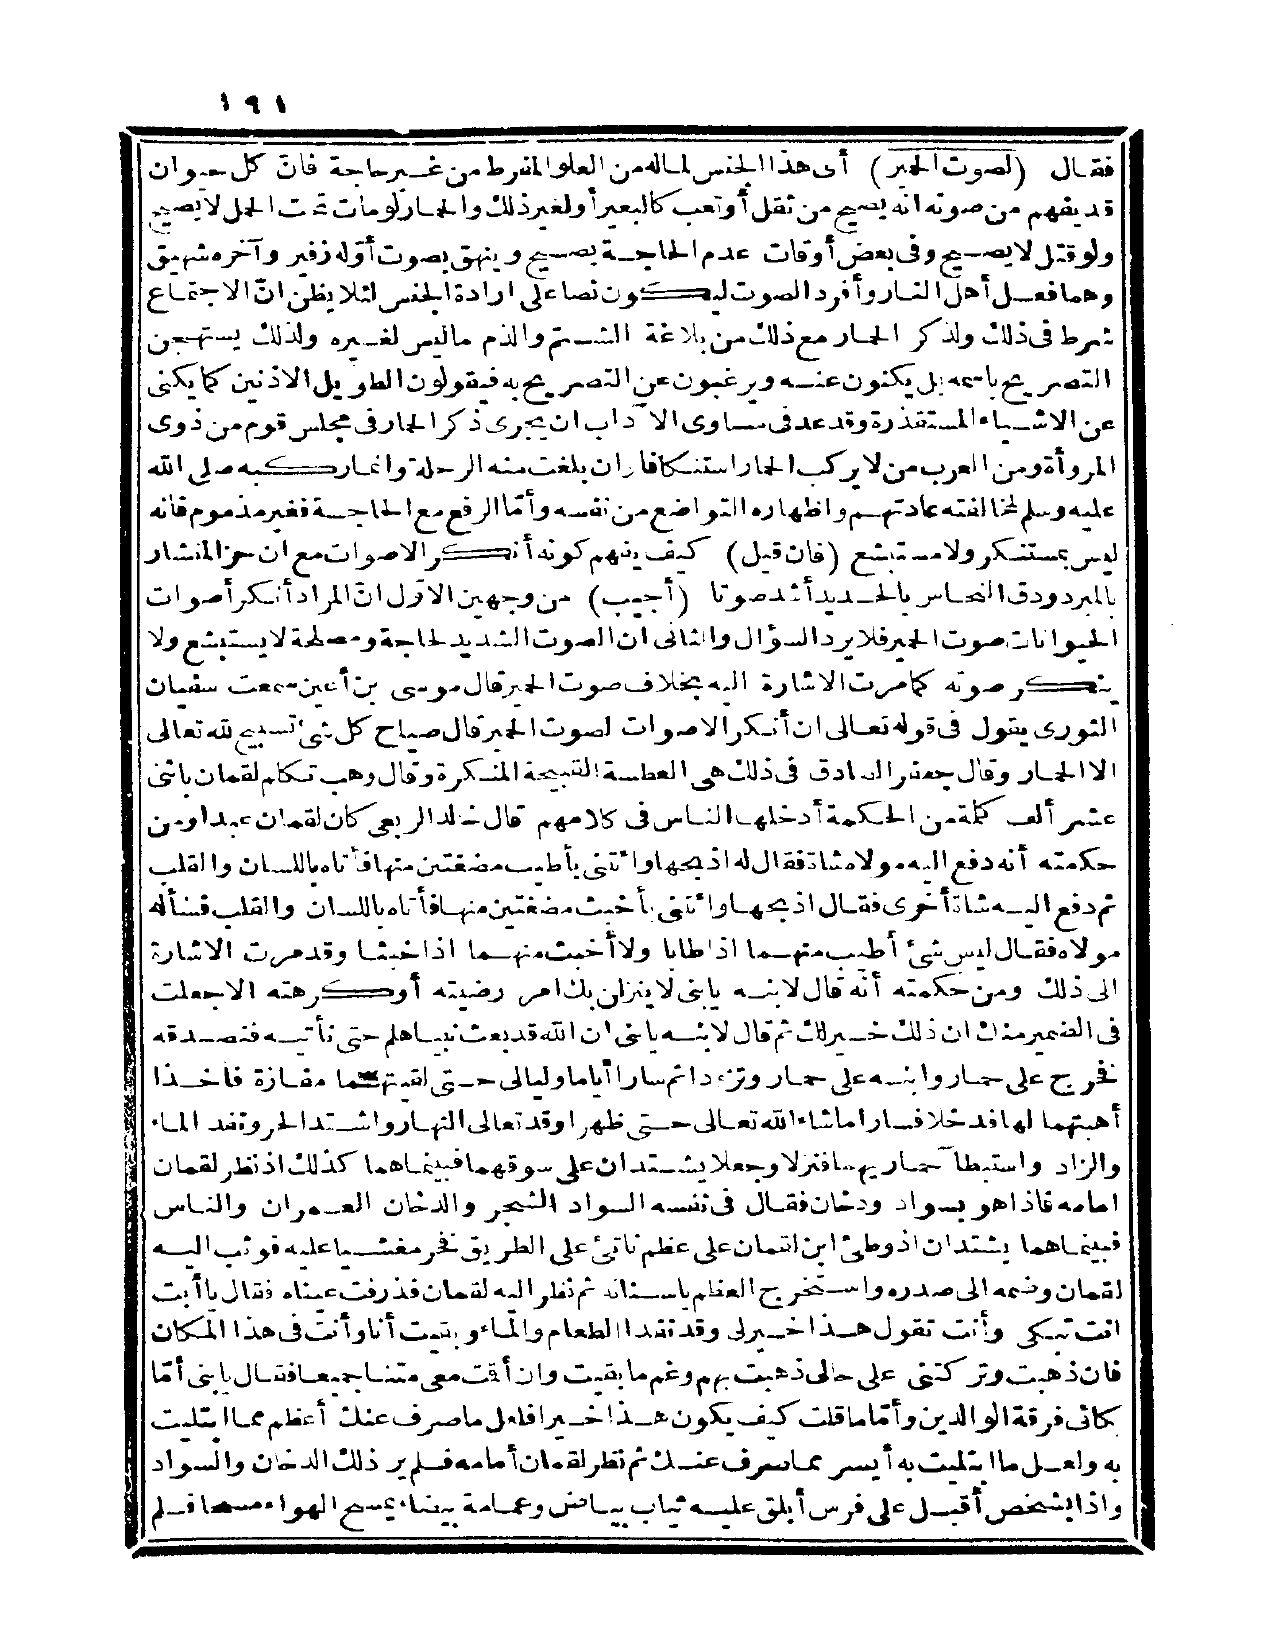 ١٩١
فقال (لصوت الحمير) أى هذا الجنس لما له من العلو المفرط من غير حاجة فان كل حيوان
قد يفهم من صوته انه يصيح من ثقل أو تعب كالبعير أو لغير ذلك والحمار لو مات تحت الحمل لا يصيح
ولو قتل لا يصيح وفى بعض أوقات عدم الحاجة يصيح وينهق بصوت أوّله زفير وآخره شهيق
وهما فعل أهل النار وأفرد الصوت ليكون نصا على ارادة الجنس لئلا يظن انّ الاجتماع
شرط فى ذلك ولذكر الحمار مع ذلك من بلاغة الشتم والذم ما ليس لغيره ولذلك يستهجن
التصريح باسمه بل يكنون عنه ويرغبون عن التصريح به فيقولون الطويل الاذنين كما يكنى
عن الاشياء المستقذرة وقد عد فى مساوى الآداب ان يجرى ذكر الحمار فى مجلس قوم من ذوى
المروأة ومن العرب من لا يركب الحمار استنكافا وان بلغت منه الرحلة وانما ركبه صلى الله
عليه وسلم لمخالفته عادتهم واظهاره التواضع من نفسه وأمّا الرفع مع الحاجة فغير مذموم فانه
ليس بمستنكر ولا مستبشع (فان قيل) كيف يفهم كونه أنكر الاصوات مع ان حز المنشار
بالمبرد ودق النحاس بالحديد أشد صوتا (أجيب) من وجهين الاوّل انّ المراد أنكر أصوات
الحيوانات صوت الحمير فلا يرد السؤال والثانى ان الصوت الشديد لحاجة ومصلحة لا يستبشع ولا
ينكر صوته كما مرت الاشارة اليه بخلاف صوت الحمير قال موسى بن أعين سمعت سفيان
الثورى يقول فى قوله تعالى ان أنكر الاصوات لصوت الحمير قال صياح كل شئ تسبيح لله تعالى
الا الحمار وقال جعفر الصادق فى ذلك هى العطسة القبيحة المنكرة وقال وهب تكلم لقمان باثنى
عشر ألف كلمة من الحكمة أدخلها الناس فى كلامهم قال خالد الربعى كان لقمان عبدا ومن
حكمته أنه دفع اليه مولاه شاة فقال له اذبحها وائتنى بأطيب مضغتين منها فأتاه باللسان والقلب
ثم دفع اليه شاة أخرى فقال اذبحها وائتنى بأخبث مضغتين منها فأتاه باللسان والقلب فسأله
مولاه فقال ليس شئ أطيب منهما اذا طابا ولا أخبث منهما اذا خبثا وقد مرت الاشارة
الى ذلك ومن حكمته أنه قال لابنه يابنى لا ينزلن بك امر رضيته أو كرهته الا جعلت
فى الضمير منك ان ذلك خير لك ثم قال لابنه يابنى ان الله قد بعث نبيا هلم حتى نأتيه فنصدقه
فخرج على حمار وابنه على حمار وتزودا ثم سارا أياما وليالى حتى لقيتهما مفازة فأخذا
أهبتهما لها فدخلا فسارا ما شاء الله تعالى حتى ظهرا وقد تعالى النهار واشتد الحر ونفد الماء
والزاد واستبطآ حماريهما فنزلا وجعلا يشتدان على سوقهما فبينما هما كذلك اذ نظر لقمان
امامه فاذا هو بسواد ودخان فقال فى نفسه السواد الشجر والدخان العمران والناس
فبينما هما يشتدان اذ وطئ ابن لقمان على عظم ناتئ على الطريق فخر مغشيا عليه فوثب اليه
لقمان وضمه الى صدره واستخرج العظم باسنانه ثم نظر اليه لقمان فذرفت عيناه فقال يا أبت
انت تبكى وأنت تقول هذا خير لى وقد نفد الطعام والماء وبقيت أنا وأنت فى هذا المكان
فان ذهبت وتركتنى على حالى ذهبت بهم وغم ما بقيت وان أقمت معى متنا جميعا فقال يابنى أمّا
بكائى فرقة الوالدين وأمّا ما قلت كيف يكون هذا خيرا فلعل ما صرف عنك أعظم مما ابتليت
به ولعل ما ابتليت به أيسر مما صرف عنك ثم نظر لقمان أمامه فلم ير ذلك الدخان والسواد
واذا بشخص أقبل على فرس أبلق عليه ثياب بياض وعمامة بيضاء يمسح الهواء مسحا فلم